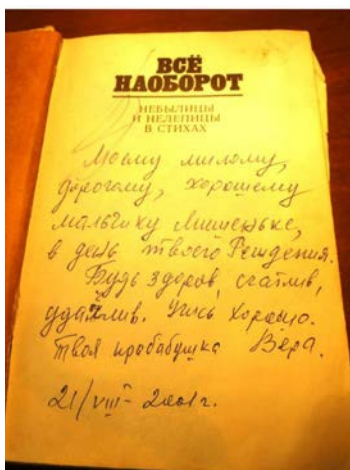 ВСЁ
НАОБОРОТ
НЕБЫЛИЦЫ
И НЕЛЕПИЦЫ
В СТИХАХ
Моему милому,
дорогому, хорошему
мальчику Мишеньке,
в день твоего Рождения.
Будь здоров, счатлив,
удачлив. Учись хорошо.
Твоя прабабушка Вера.
21/VIII - 2001 г.